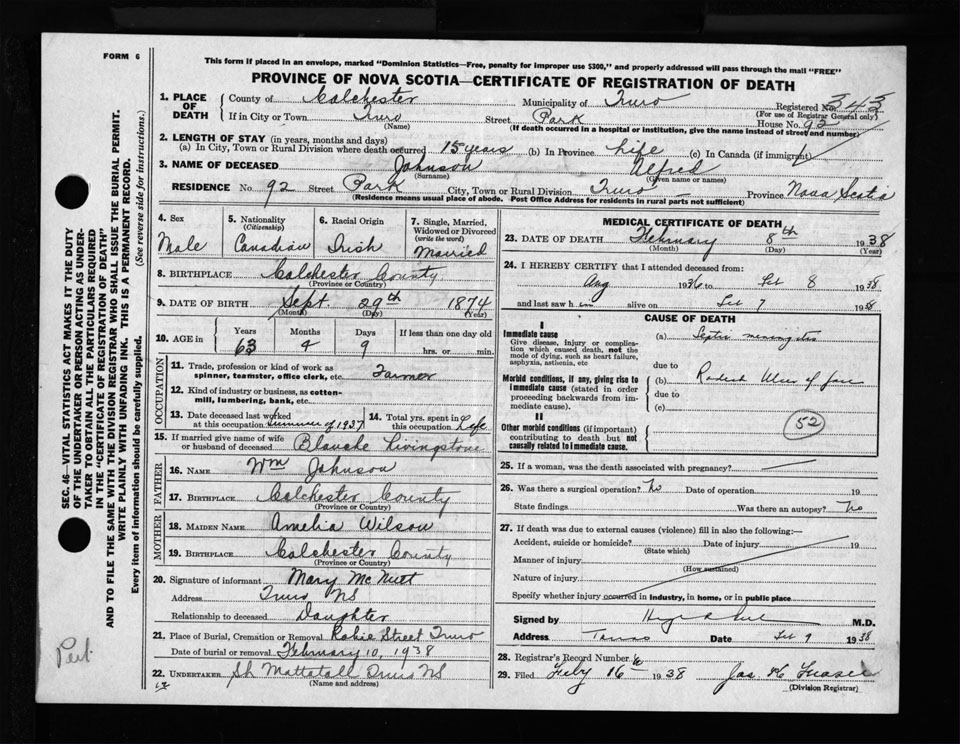 FORM 6
This form if placed in an envelope, marked "Dominion Statistics—Free, penalty for improper use $300," and properly addressed will pass through the mail "FREE"
PROVINCE OF NOVA SCOTIA—CERTIFICATE OF REGISTRATION OF DEATH
SEC. 46—VITAL STATISTICS ACT MAKES IT THE DUTY
OF THE UNDERTAKER OR PERSON ACTING AS UNDER-
TAKER TO OBTAIN ALL THE PARTICULARS REQUIRED
IN THE "CERTIFICATE OF REGISTRATION OF DEATH"
AND TO FILE THE SAME WITH THE DIVISION REGISTRAR WHO SHALL ISSUE THE BURIAL PERMIT.
WRITE PLAINLY WITH UNFADING INK. THIS IS A PERMANENT RECORD.
Every item of information should be carefully supplied. (See reverse side for instructions.)
1. PLACE OF DEATH County of Colchester Municipality of Truro Registered No. 343
(For use of Registrar General only)
If in City or Town Truro Street Park House No. 92
(Name) (If death occurred in a hospital or institution, give the name instead of street and number)
2. LENGTH OF STAY (in years, months and days)
(a) In City, Town or Rural Division where death occurred 15 years (b) In Province Life (c) In Canada (if immigrant)
3. NAME OF DECEASED Johnson Alfred
(Surname) (Given name or names)
RESIDENCE No. 92 Street Park City, Town or Rural Division Truro Province Nova Scotia
(Residence means usual place of abode. Post Office Address for residents in rural parts not sufficient)
4. Sex 5. Nationality (Citizenship) 6. Racial Origin 7. Single, Married, Widowed or Divorced (write the word)
Male Canadian Irish Married
8. BIRTHPLACE Colchester County
(Province or Country)
9. DATE OF BIRTH Sept. 29th 1874
(Month) (Day) (Year)
10. AGE in Years Months Days If less than one day old
63 4 9 hrs. or min.
OCCUPATION
11. Trade, profession or kind of work as spinner, teamster, office clerk, etc. Farmer
12. Kind of industry or business, as cotton-mill, lumbering, bank, etc.
13. Date deceased last worked at this occupation Summer of 1937 14. Total yrs. spent in this occupation Life
15. If married give name of wife or husband of deceased Blanche Livingstone
FATHER
16. NAME Wm Johnson
17. BIRTHPLACE Colchester County
(Province or Country)
MOTHER
18. MAIDEN NAME Amelia Wilson
19. BIRTHPLACE Colchester County
(Province or Country)
20. Signature of informant Mary McNutt
Address Truro NS
Relationship to deceased Daughter
21. Place of Burial, Cremation or Removal Robie Street Truro
Date of burial or removal February 10, 1938
22. UNDERTAKER Mattatall Truro NS
(Name and address)
MEDICAL CERTIFICATE OF DEATH
23. DATE OF DEATH February 8th 1938
(Month) (Day) (Year)
24. I HEREBY CERTIFY that I attended deceased from:
Aug 1936 to Feb 8 1938
and last saw him alive on Feb 7 1938
CAUSE OF DEATH
I
Immediate cause
Give disease, injury or complication which caused death, not the mode of dying, such as heart failure, asphyxia, asthenia, etc
(a) Septic meningitis
due to
Morbid conditions, if any, giving rise to immediate cause (stated in order proceeding backwards from immediate cause).
(b) Rodent Ulcer of face
due to
(c)
II
Other morbid conditions (if important) contributing to death but not causally related to immediate cause.
52
25. If a woman, was the death associated with pregnancy?
26. Was there a surgical operation? No Date of operation 19
State findings Was there an autopsy? No
27. If death was due to external causes (violence) fill in also the following:—
Accident, suicide or homicide? Date of injury 19
(State which)
Manner of injury
(How sustained)
Nature of injury
Specify whether injury occurred in industry, in home, or in public place
Signed by M.D.
Address Truro Date Feb 9 1938
28. Registrar's Record Number
29. Filed Feby 16 1938 Jas. H. Fraser
(Division Registrar)